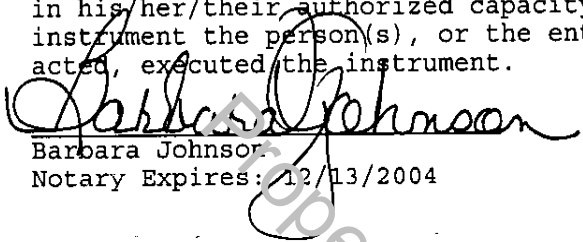 in his/her/their authorized capacity
instrument the person(s), or the ent
acted, executed the instrument.
Barbara Johnson
Barbara Johnson
Notary Expires: 12/13/2004
Prope